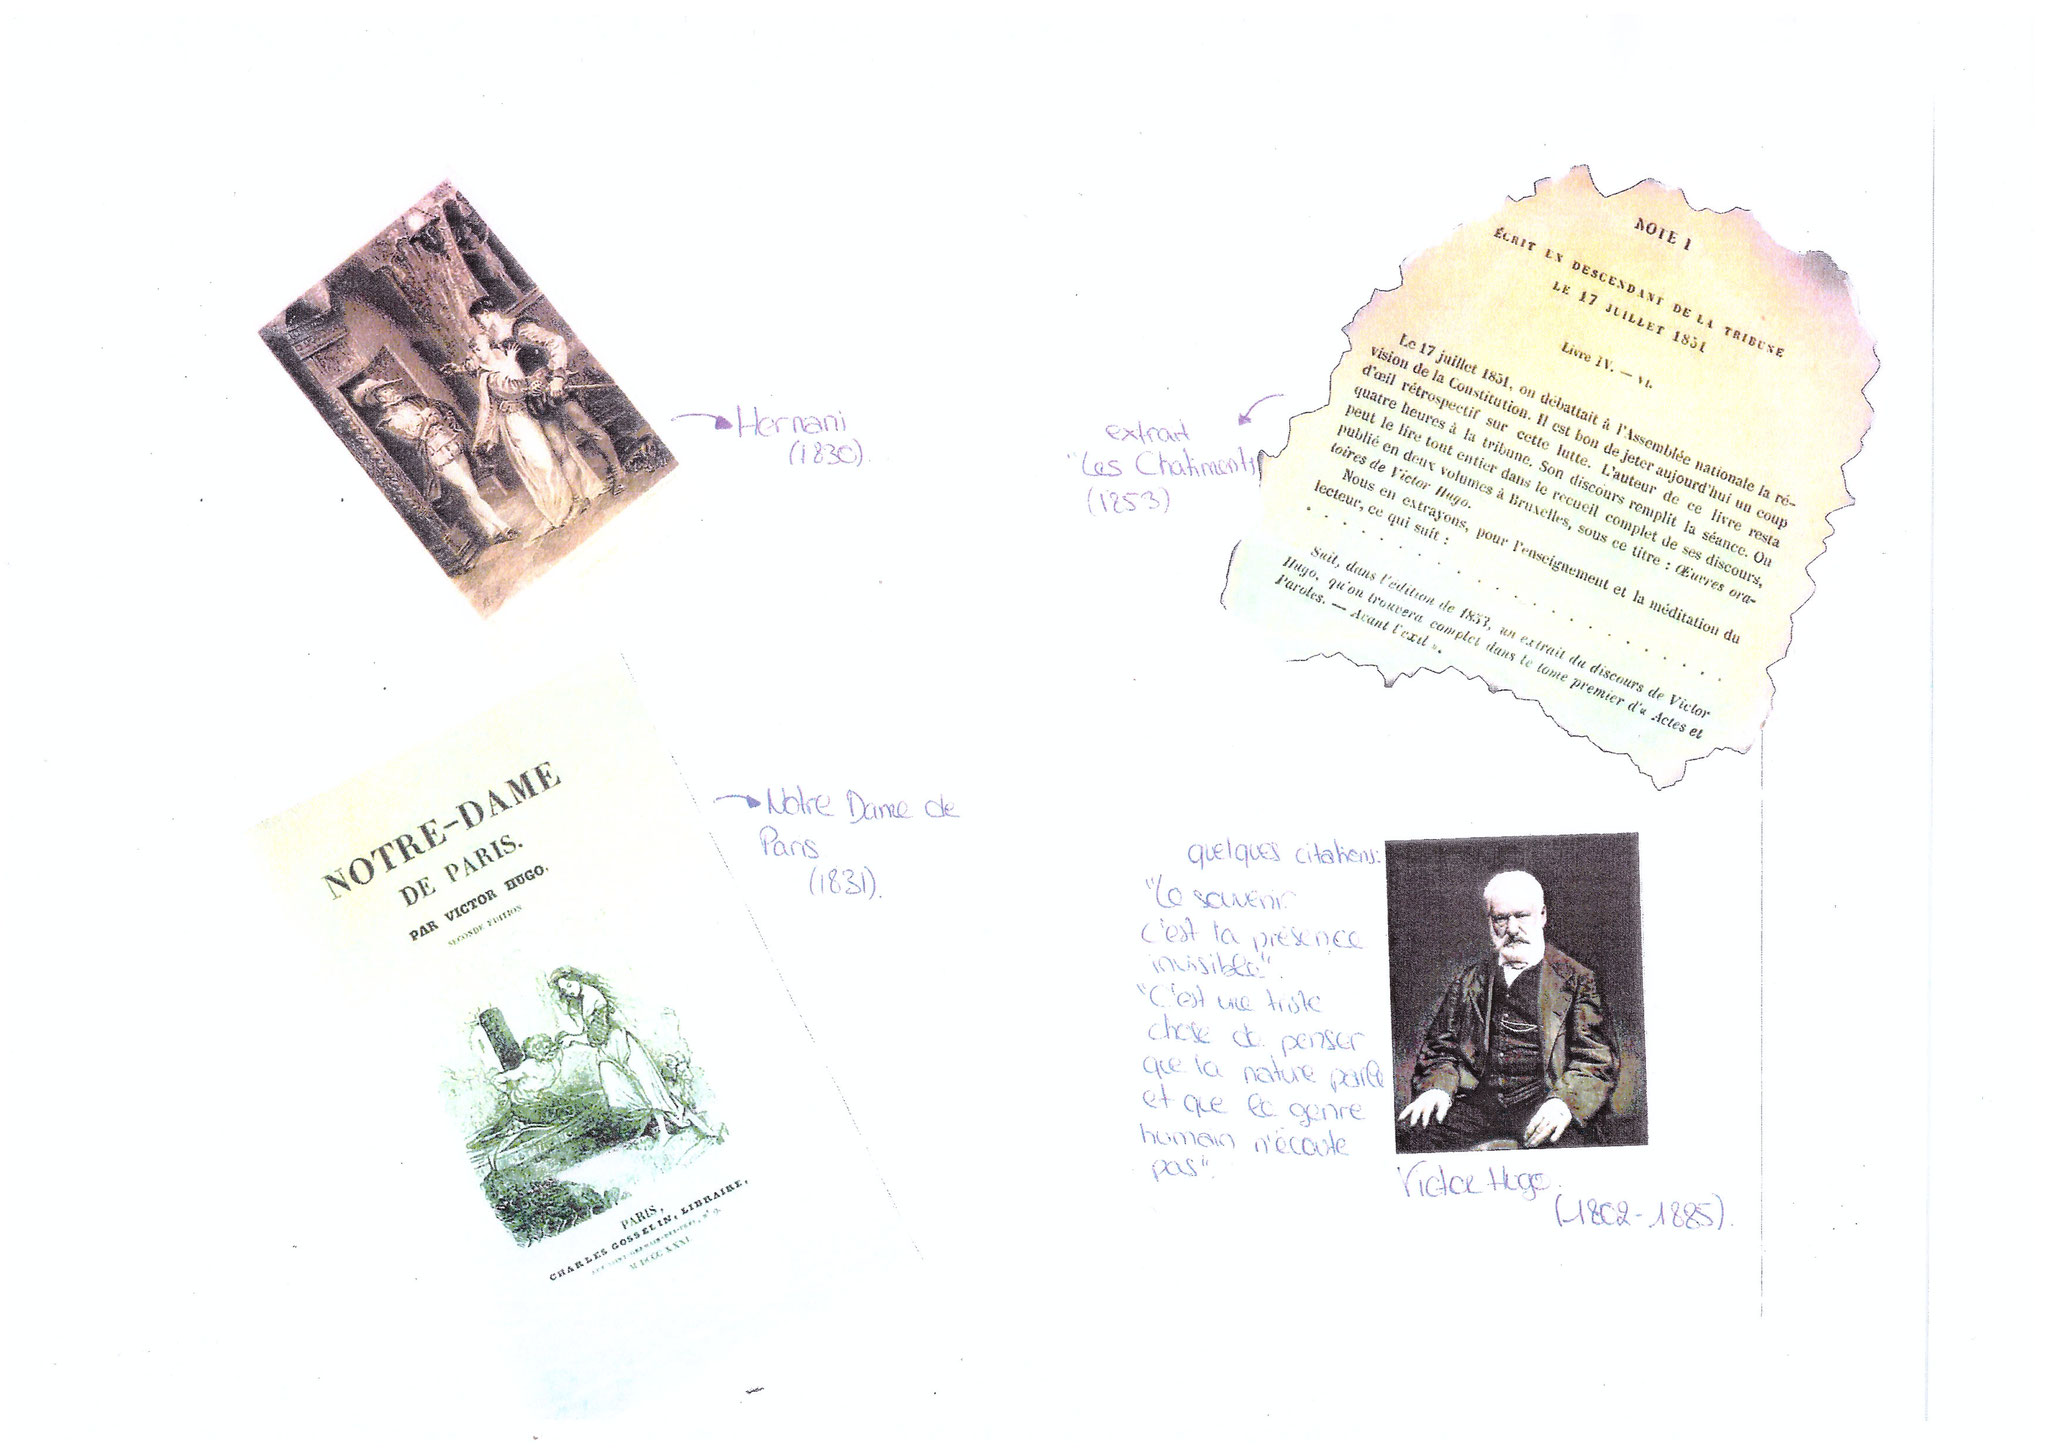 Hernani
(1830).
NOTRE-DAME
DE PARIS.
PAR VICTOR HUGO.
SECONDE ÉDITION
PARIS,
CHARLES GOSSELIN, LIBRAIRE,
M DCCC XXXI
Notre Dame de
Paris
(1831).
NOTE I
ÉCRIT EN DESCENDANT DE LA TRIBUNE
LE 17 JUILLET 1851
Livre IV. — VI.
Le 17 juillet 1851, on débattait à l'Assemblée nationale la ré-
vision de la Constitution. Il est bon de jeter aujourd'hui un coup
d'œil rétrospectif sur cette lutte. L'auteur de ce livre resta
quatre heures à la tribune. Son discours remplit la séance. On
peut le lire tout entier dans le recueil complet de ses discours,
publié en deux volumes à Bruxelles, sous ce titre : Œuvres ora-
toires de Victor Hugo.
Nous en extrayons, pour l'enseignement et la méditation du
lecteur, ce qui suit :
. . . . . . . . . . . . . . . .
Suit, dans l'édition de 1853, un extrait du discours de Victor
Hugo, qu'on trouvera complet dans le tome premier d'« Actes et
Paroles. — Avant l'exil ».
extrait
"Les Chatiments
(1853)
quelques citations:
"Le souvenir
c'est la présence
invisible".
"C'est une triste
chose de penser
que la nature parle
et que le genre
humain n'écoute
pas".
Victor Hugo.
(1802-1885).